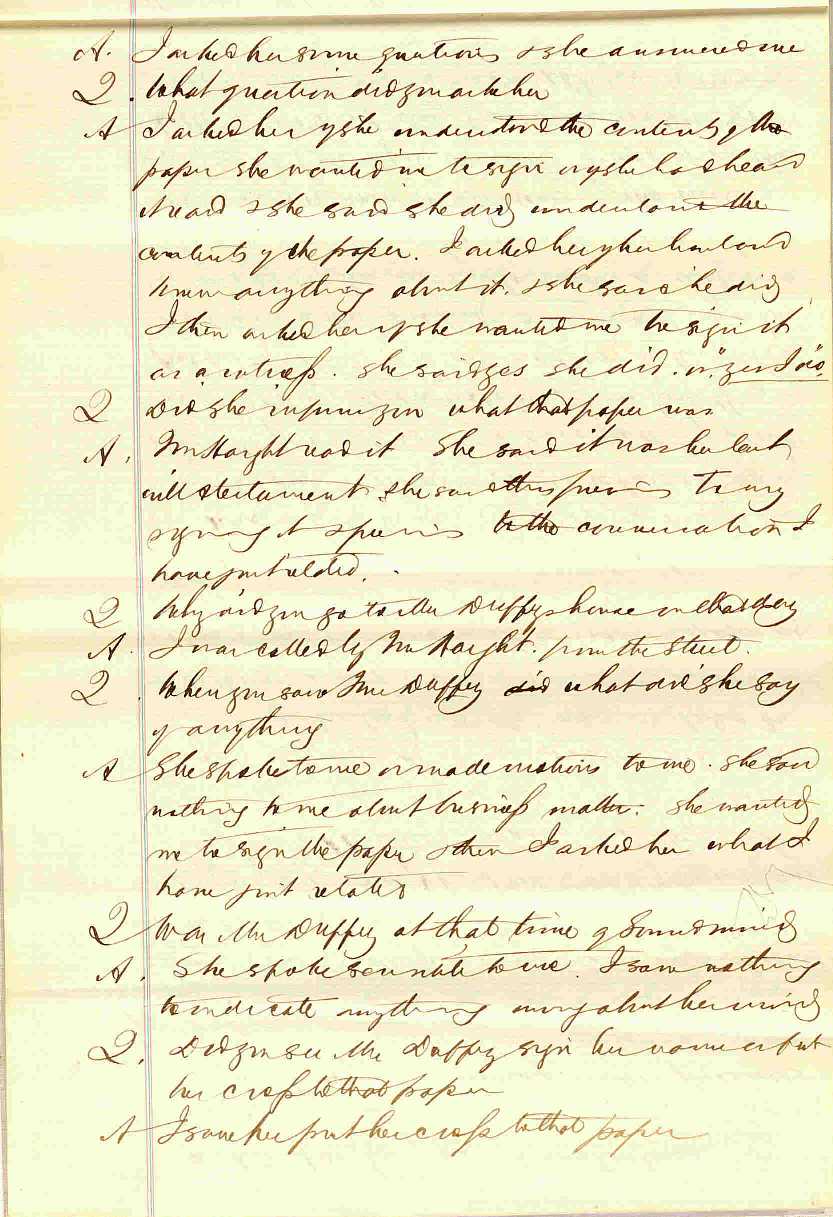 A. I asked her some questions & she answered me
Q. What question did you ask her
A I asked her if she understood the contents of the
paper she wanted me to sign or if she had heard
it read & she said she did understand the
contents of the paper. I asked her if her husband
knew anything about it. & she said he did
I then asked her if she wanted me to sign it
as a witness. she said yes she did. or "yes I do"
Q Did she inform you what that paper was
A. Mr Haight read it She said it was her last
will & testament she said this previous to my
signing it & previous to the conversation I
have just related.
Q Why did you go to Mrs Duffys house on that day
A. I was called by Mr Haight. from the street.
Q. When you saw Mrs Duffey did what did she say
if anything
A She spoke to me or made motions to me. she said
nothing to me about business matter. she wanted
me to sign the paper & then I asked her what I
have just related
Q Was Mrs Duffey at that time of sound mind
A. She spoke to me. I saw nothing
to indicate anything wrong about her mind
Q. Did you see Mrs Duffey sign her name or put
her cross to that paper
A I saw her put her cross to that paper